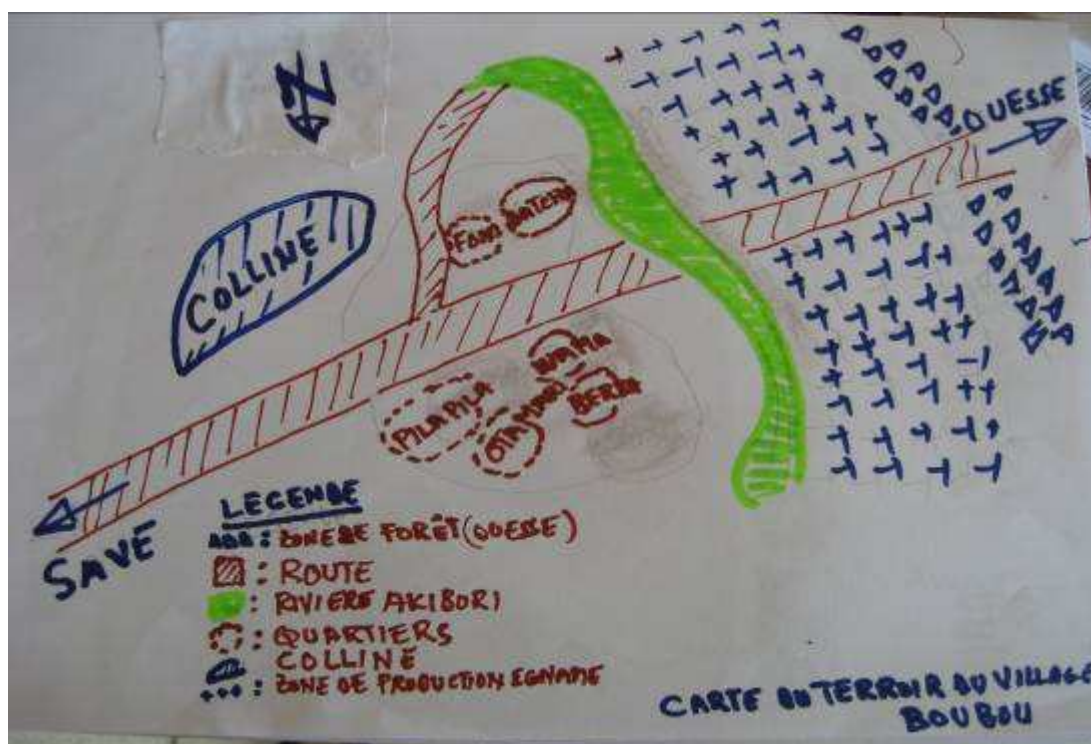 N
OUESSE
COLLINE
FON
BATCHA
PILA PILA
OTAMARI
BERBA
SAVE
LEGENDE
: ZONE DE FORÊT (OUESSE)
: ROUTE
: RIVIERE AKIBORI
: QUARTIERS
COLLINE
: ZONE DE PRODUCTION IGNAME
CARTE DU TERROIR DU VILLAGE
BOUBOU